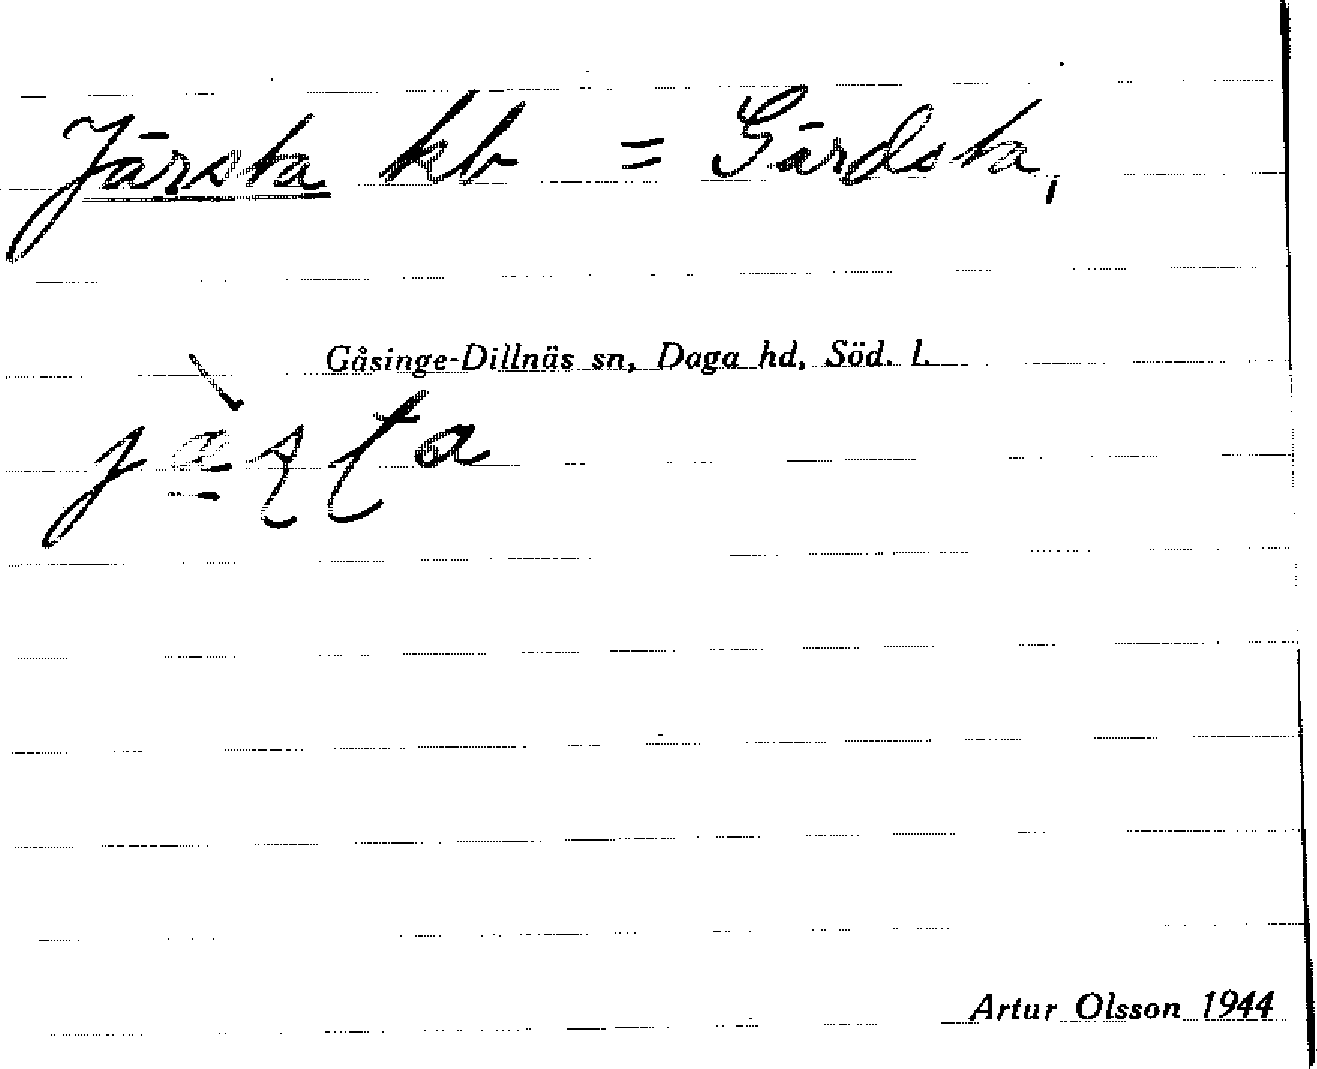 Järsta kb = Gärdsta,
Gåsinge-Dillnäs sn, Daga hd, Söd. l.
Artur Olsson 1944